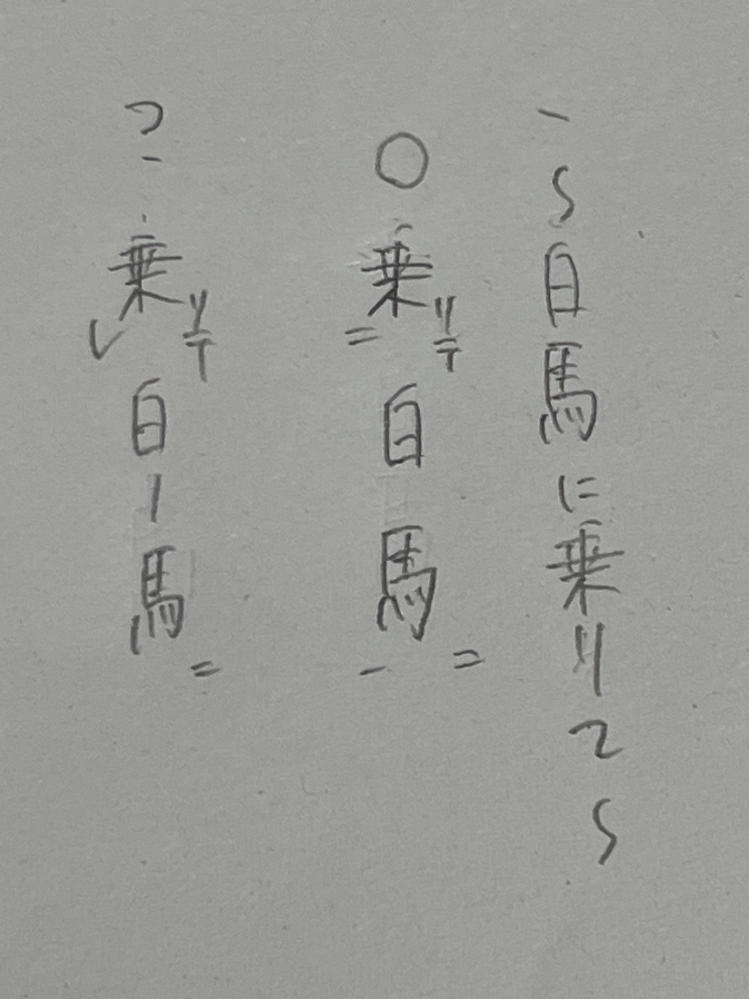 〜白馬に乗りて〜
○乗リテ二白馬ニ一
?乗リテレ白ー馬ニ